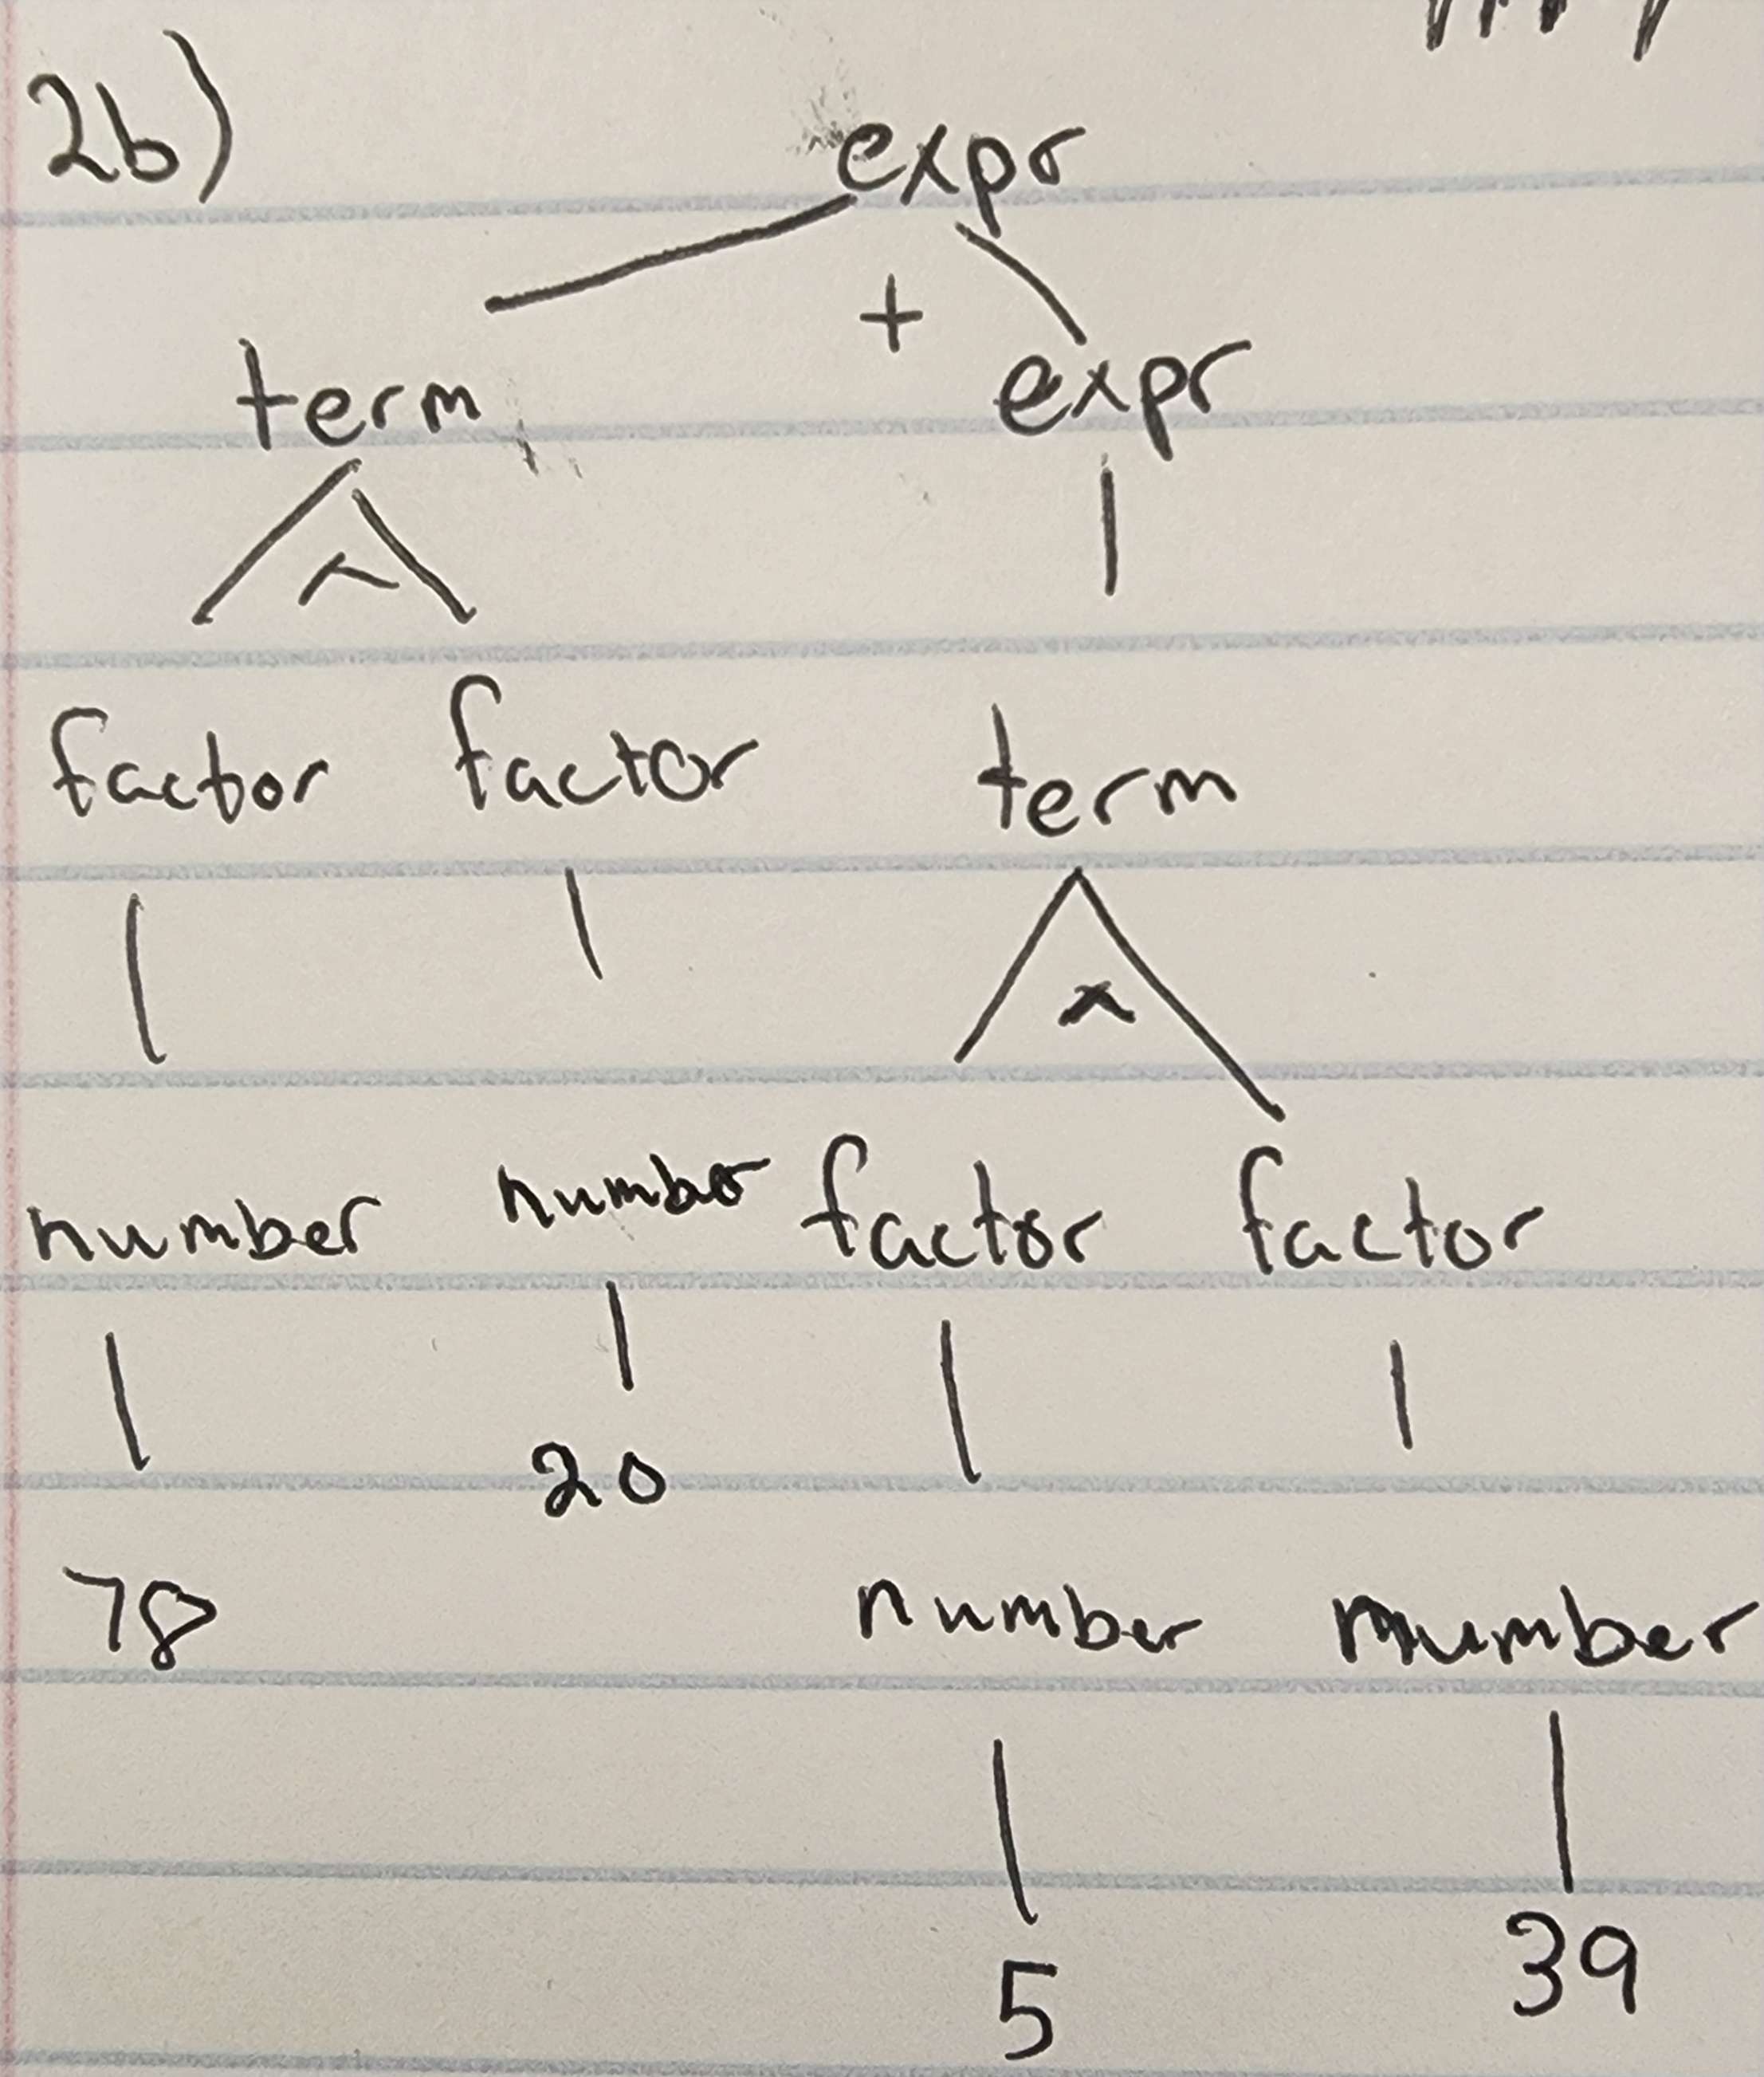 2b)
expr
+
term expr
^
factor factor term
^
number number factor factor
20
78 number number
5 39